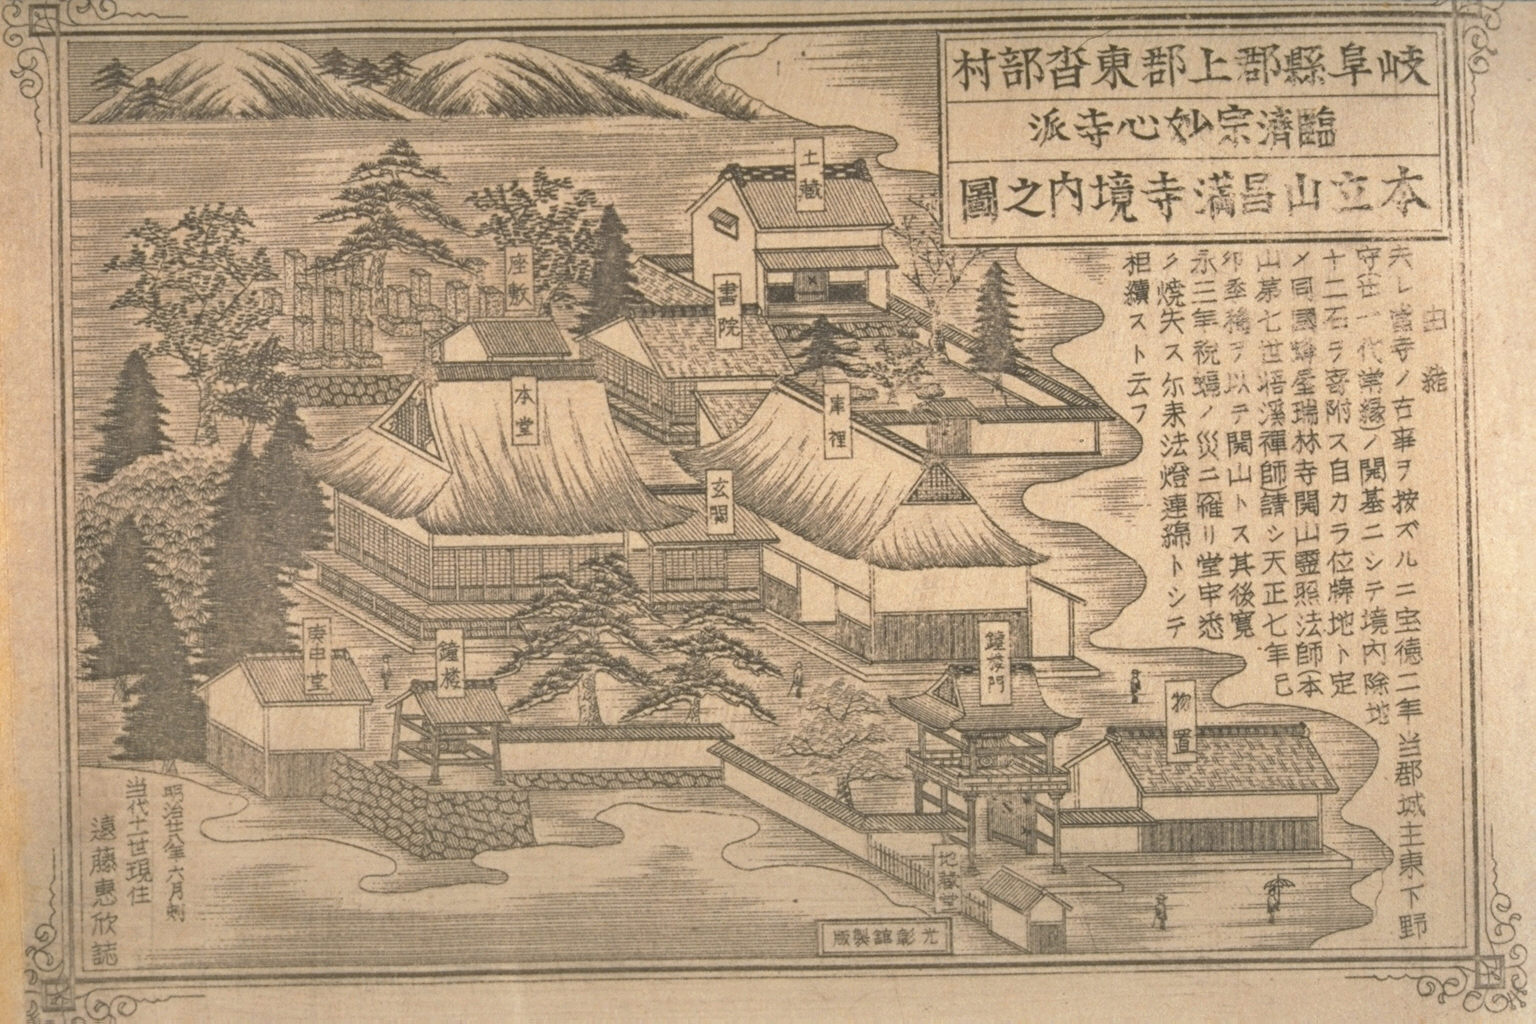 岐阜縣郡上郡東沓部村
臨濟宗妙心寺派
本立山昌満寺境内之圖
由緒
夫レ當寺ノ古事ヲ按ズルニ宝徳二年当郡城主東下野
守在一代常縁ノ開基ニシテ境内除地
十二石ヲ寄附ス自カラ位牌地ト定
メ同國蜂屋瑞林寺開山靈照法師本
山第七世悟溪禪師請シ天正七年己
卯季 ヲ以テ開山トス其後寛
永三年祝 ノ災ニ罹リ堂宇悉
ク焼失ス尓来法燈連綿トシテ
相續スト云フ
土蔵
座敷
書院
本堂
庫裡
玄関
庚申堂
鐘楼
鐘 門
物置
地蔵堂
明治廿八年六月刻
当代十一世現住
遠藤惠欣誌
光彰館製版